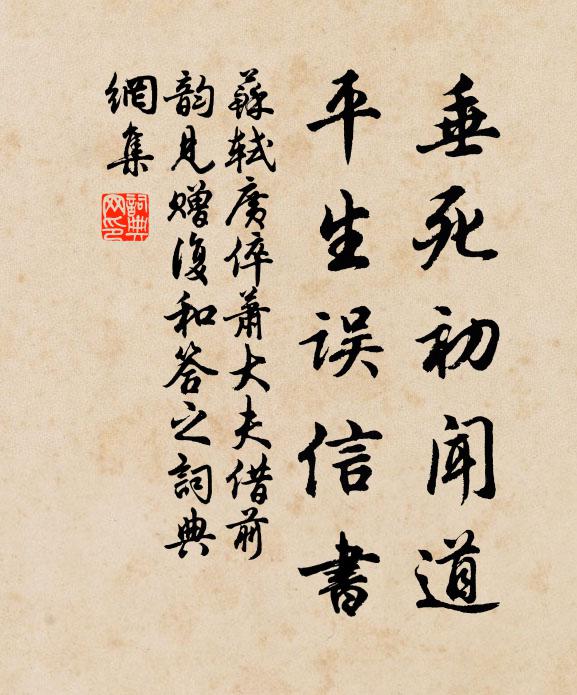 垂死初闻道
平生误信書
蘇軾廣倅蕭大夫借前
韵見贈復和答之詞典
網集
詞典網印